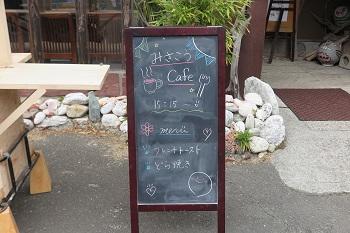 みさこう
Cafe
15:15～
menu
フレンチトースト
どら焼き